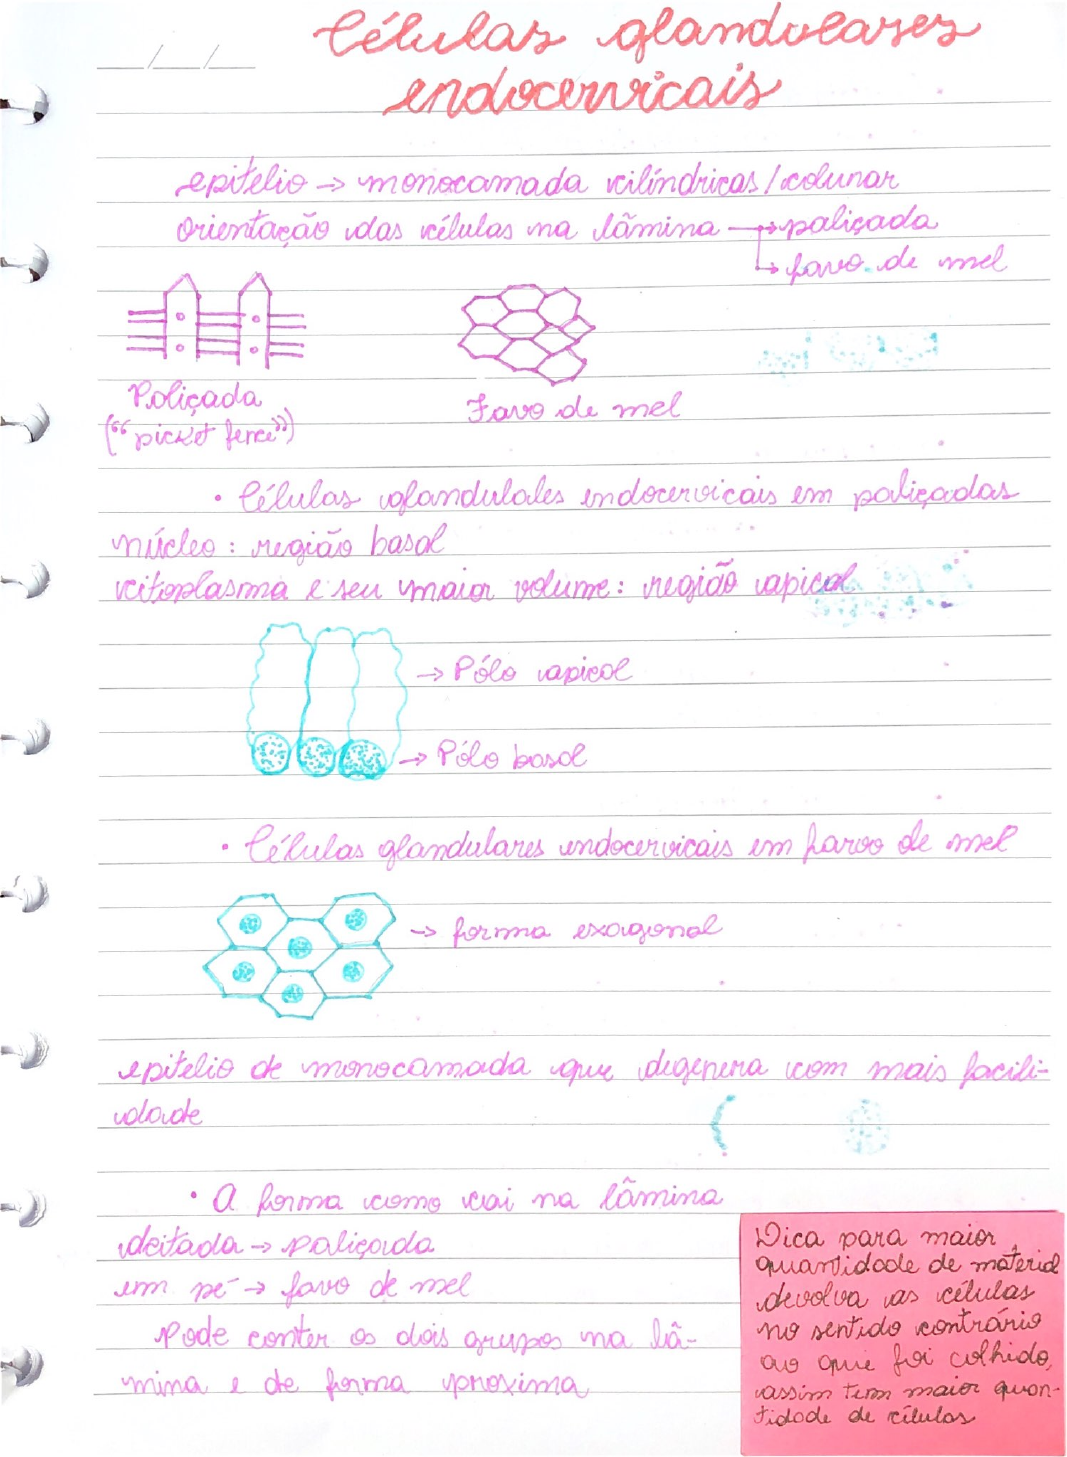 Células glandulares
endocervicais
epitélio → monocamada cilíndricas/colunar
orientação das células na lâmina → paliçada
→ favo de mel
Paliçada
("picket fence")
Favo de mel
• Células glandulales endocervicais em paliçadas
núcleo: região basal
citoplasma e seu maior volume: região apical
→ Pólo apical
→ Pólo basal
• Células glandulares endocervicais em favoo de mel
→ forma exagonal
epitelio de monocamada que degenera com mais facili-
dade
• A forma como cai na lâmina
deitada → paliçada
em pé → favo de mel
Pode conter os dois grupos na lâ-
mina e de forma proxima
Dica para maior
quantidade de material
devolva as células
no sentido contrário
ao que foi colhido,
assim tem maior quan-
tidade de células